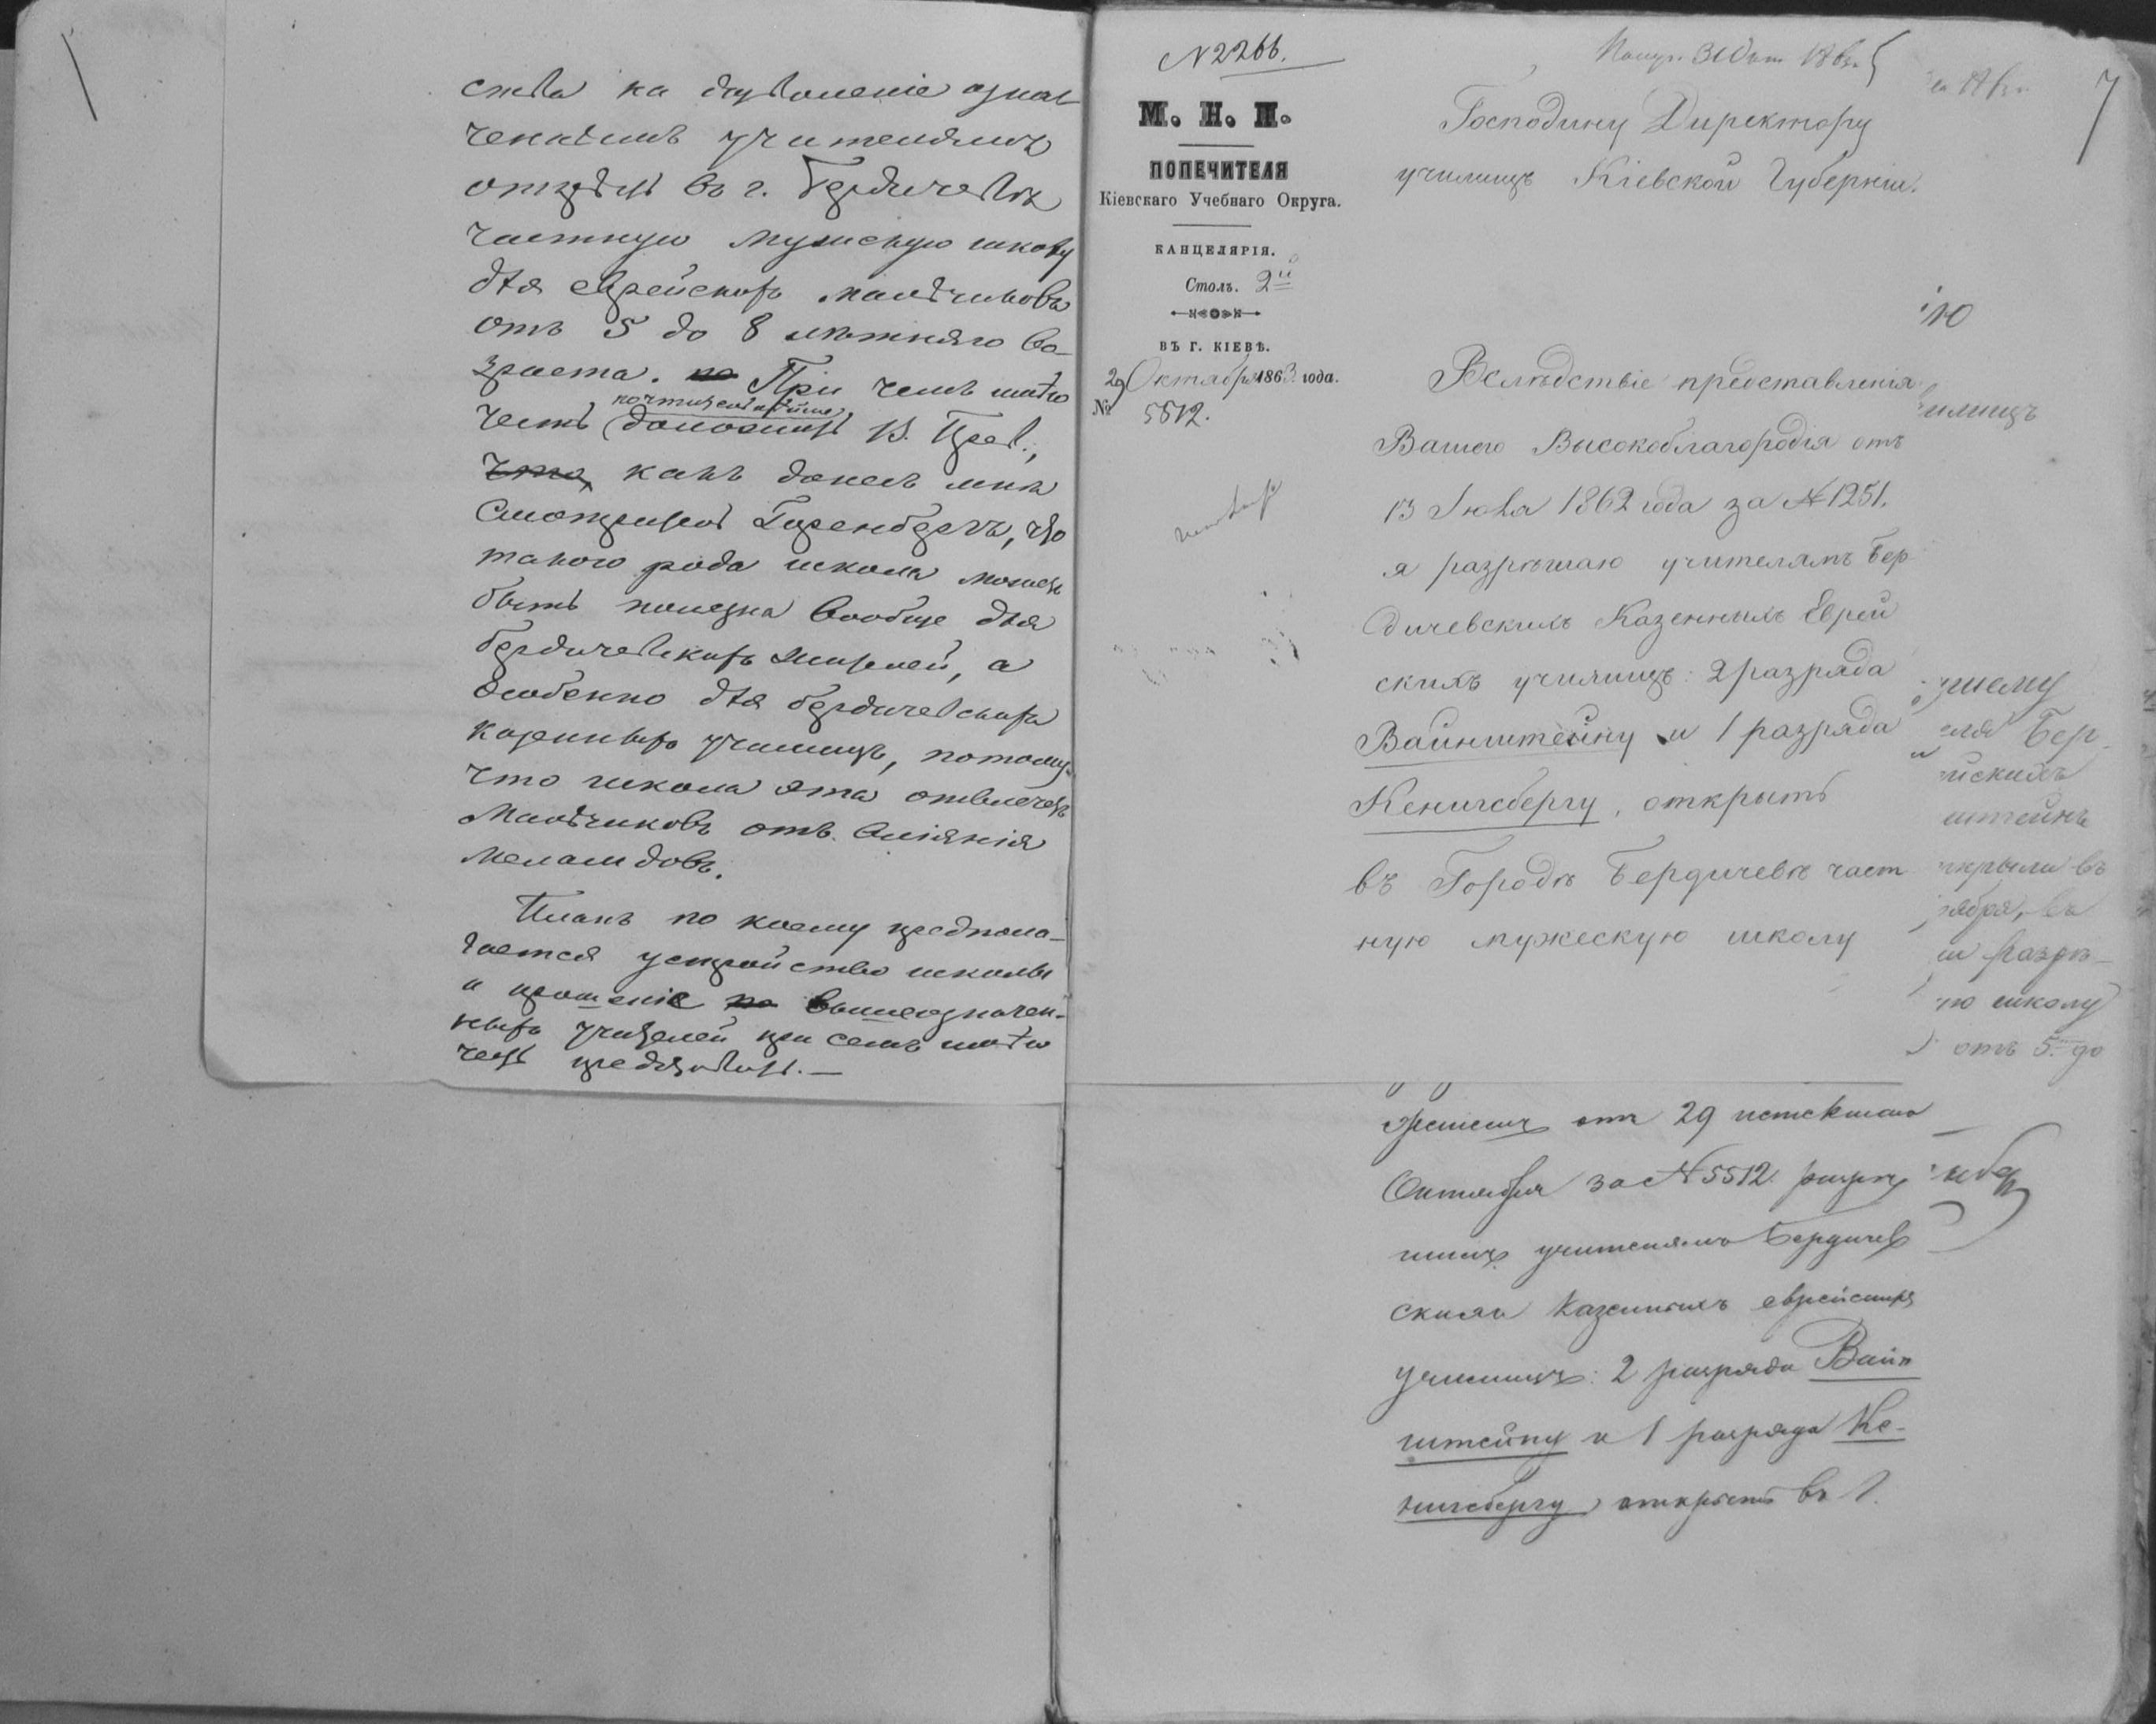 ства на дозволеніе озна-
ченнымъ учителямъ
открыть въ г. Бердичевѣ
частную мужскую школу
для еврейскихъ мальчиковъ
отъ 5 до 8 лѣтняго во-
зраста. но При чемъ имѣю
почтительнѣйше
честь доложить В. Прев.,
что, какъ донесъ мнѣ
Смотритель Гиренбергъ, что
такого рода школа можетъ
быть полезна вообще для
бердичевскихъ жителей, а
особенно для бердичевскихъ
казенныхъ училищъ, потому
что школа эта отвлечетъ
мальчиковъ отъ вліянія
меламдовъ.
Планъ по коему предпола-
гается устройство школы
и прошеніе вышеозначен-
ныхъ учителей при семъ имѣю
честь представить.—
N 2266.
М. Н. П.
ПОПЕЧИТЕЛЯ
Кіевскаго Учебнаго Округа.
КАНЦЕЛЯРІЯ.
Столъ. 2й
ВЪ Г. КІЕВѢ.
29 Октября 1863 года.
№ 5512.
Получ. 31 Окт. 1863
7
Господину Директору
училищъ Кіевской Губерніи.
Вслѣдствіе представленія
Вашего Высокоблагородія отъ
13 Іюля 1862 года за № 1251.
я разрѣшаю учителямъ Бер
дичевскихъ Казенныхъ Еврей
скихъ училищъ: 2 разряда
Вайнштейну и 1 разряда
Кенигсбергу, открыть
въ Городѣ Бердичевѣ част
ную мужескую школу
ію
илищъ
шему
еля Бер
йскихъ
штейнъ
ткрыли въ
ября, въ
и разрѣ-
ую школу
отъ 5 до
отъ 29 истекшаго
Октября за № 5512. разрѣ
шилъ учителямъ Бердичев
скихъ Казенныхъ еврейскихъ
училищъ: 2 разряда Вайн
штейну и 1 разряда Ке-
нигсбергу открыть въ г.